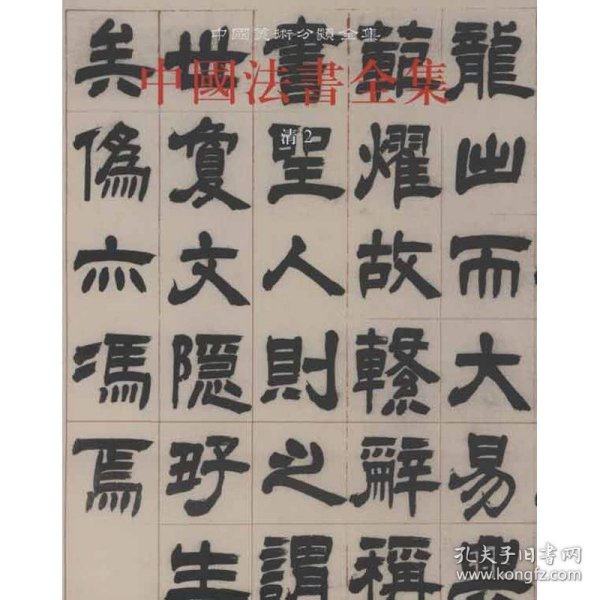 中國美術分類全集
中國法書全集
清2
龍出而大易興
範耀故繫辭稱
書聖人則之謂
世夐文隱好生
矣偽亦馮焉
孔夫子旧书网
www.kongfz.com